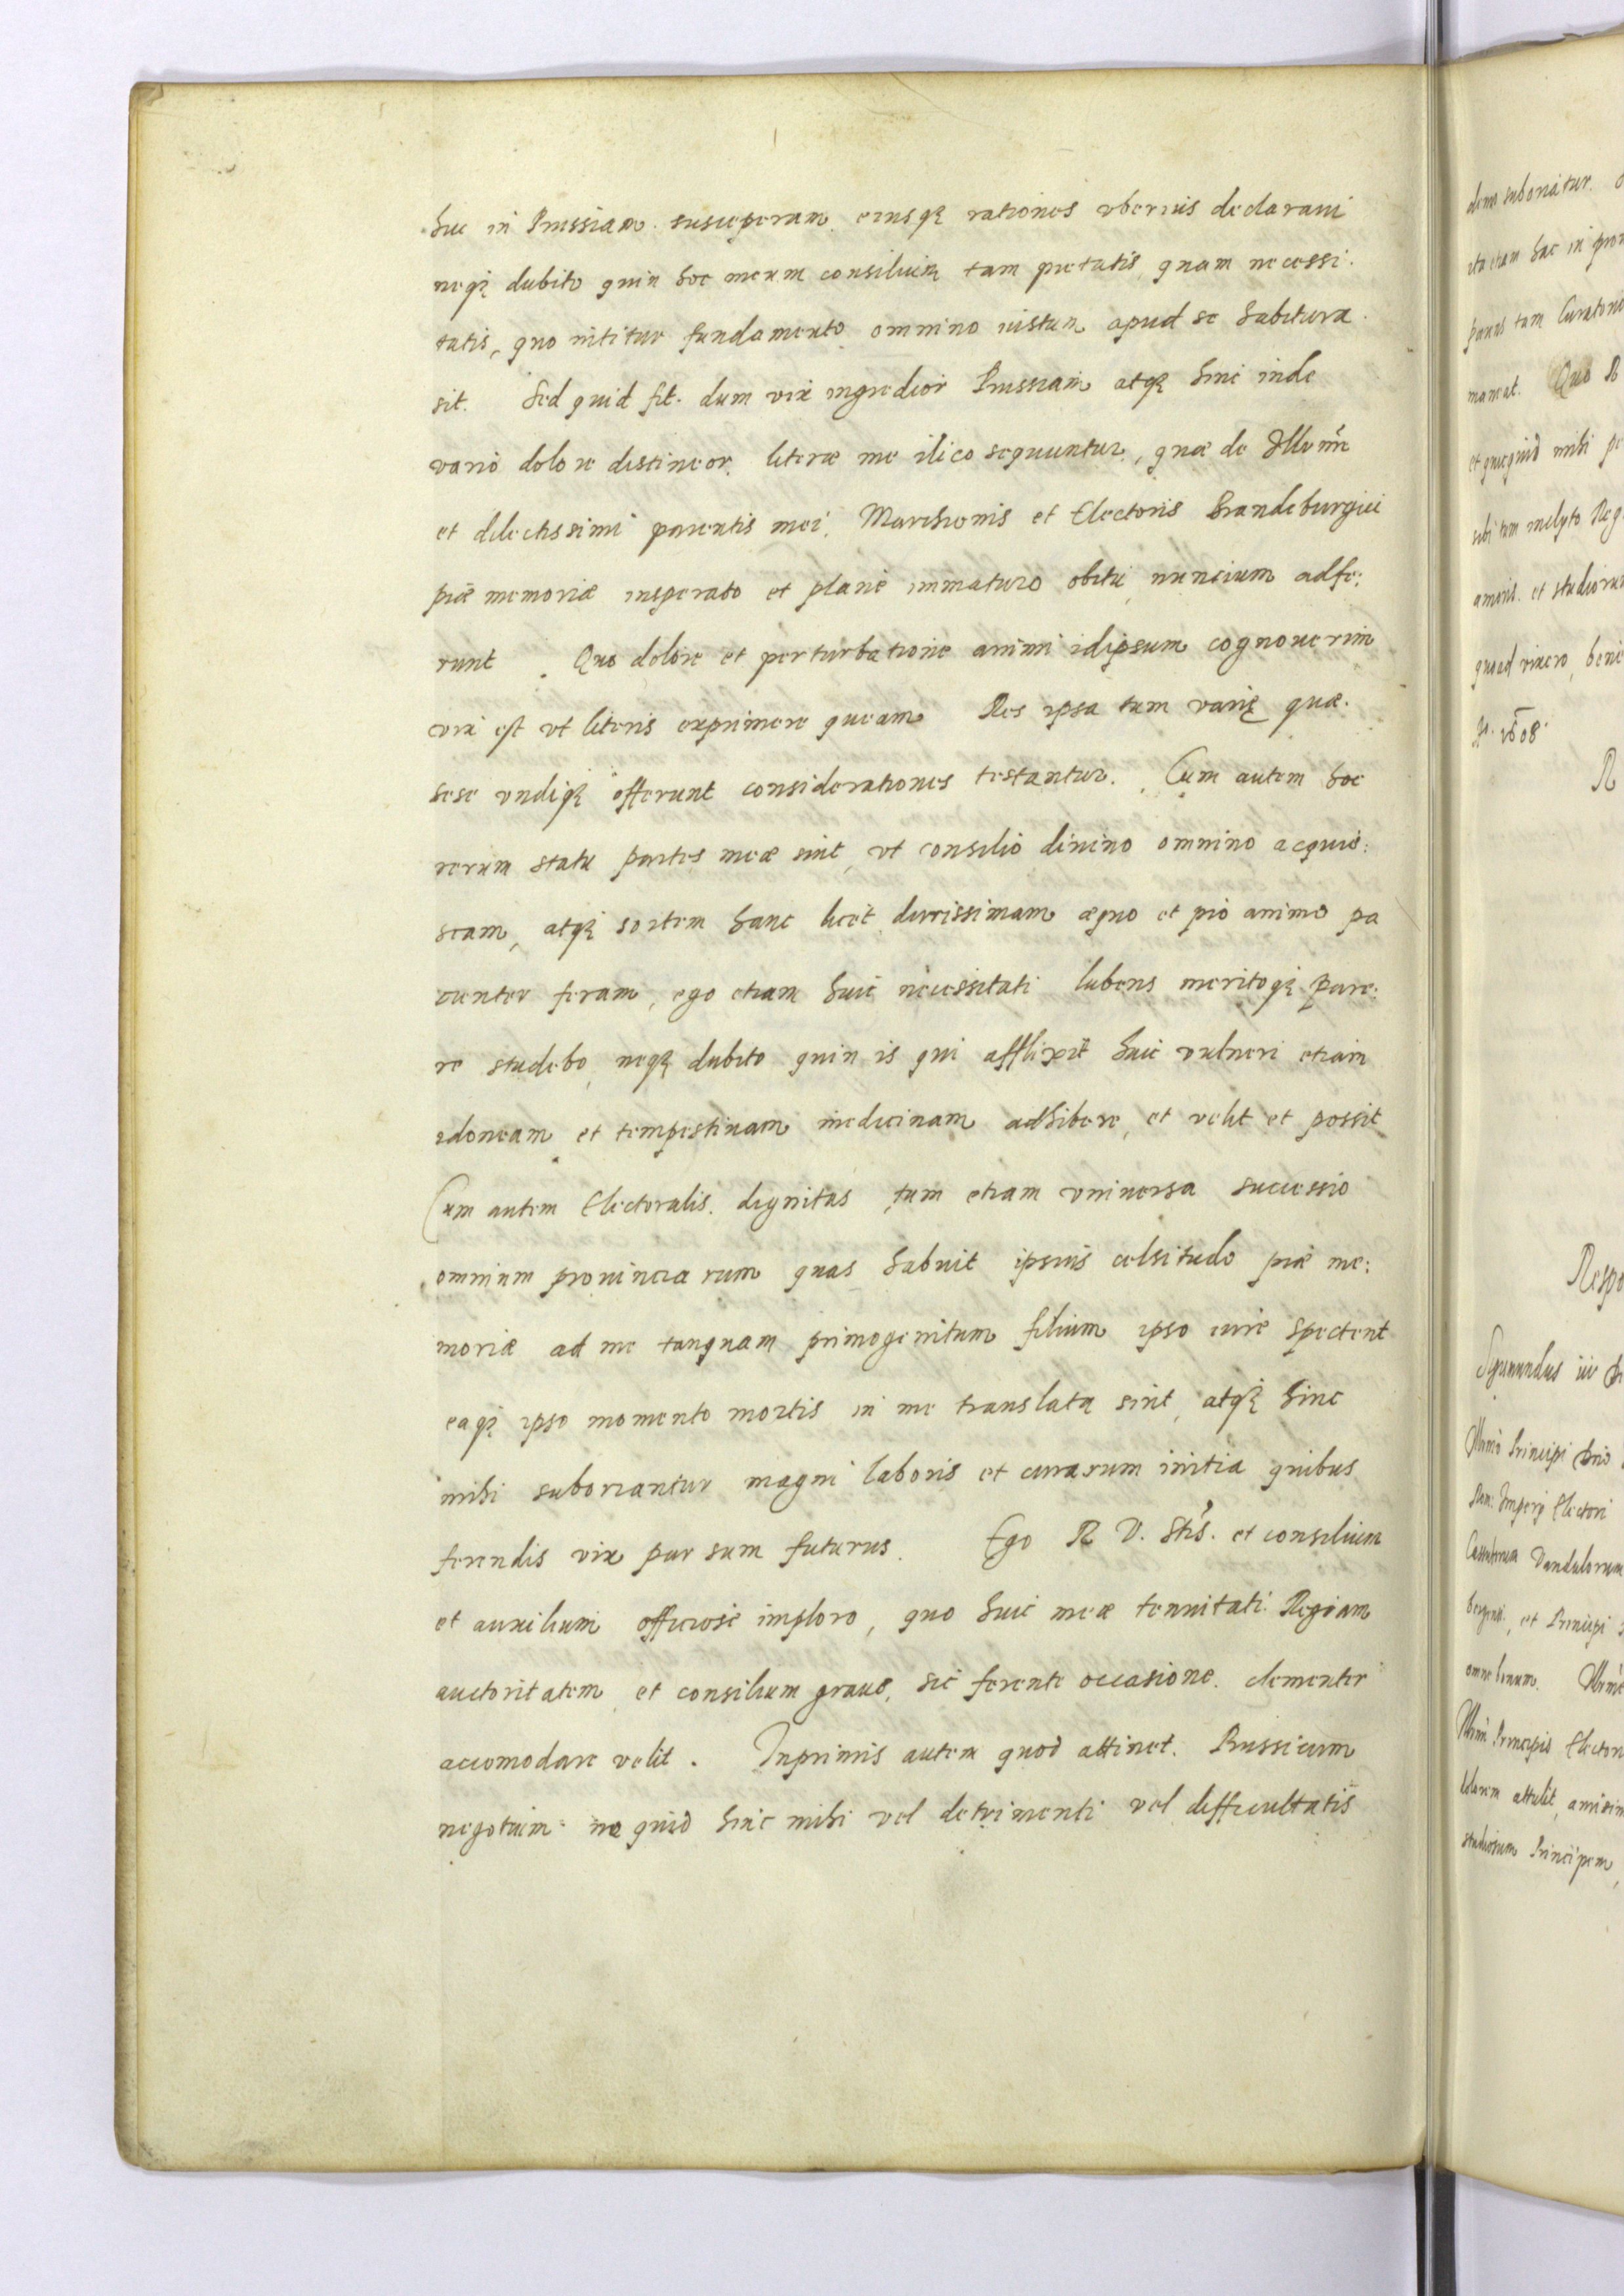 huc in Prussiam susceperam eiusq; rationes vberius declaraui
neq; dubito quin hoc meum consilium tam pietatis quam necessi.
tatis, quo nititur fundamento omnino iustum apud se habitura
sit. Sed quid fit. dum vix ingredior Prussiam atq; hinc inde
vario dolore distineor literæ me ilico sequuntur, quæ de Illmi
et dilectissimi parentis mei, Marchionis et Electoris Brandeburgici
piæ memoriæ insperato et plane immaturo obitu nuncium adfe:
runt. Quo dolore et perturbatione animi idipsum cognouerim
vix est vt literis exprimere queam Res ipsa tum varię quæ.
sese vndiq; offerunt considerationes testantur. Cum autem hoc
rerum statu partes meæ sint, vt consilio diuino omnino acquie:
scam, atq; sortem hanc licet durissimam æquo et pio animo pa
cienter feram, ego etiam huic necessitati lubens meritoq; pare:
re studebo, neq; dubito quin is qui afflixit huic vulneri etiam
idoneam et tempestiuam medicinam adhibere, et velit et possit
Cum autem Electoralis dignitas tum etiam vniuersa successio
omnium prouinciarum quas habuit ipsius celsitudo piæ me:
moriæ ad me tanquam primogenitum filium ipso iure spectent
eaq; ipso momento mortis in me translata sint, atq; hinc
mihi suboriantur magni laboris et curarum initia quibus
ferendis vix par sum futurus. Ego R V. Stis. et consilium
et auxilium officiose imploro, quo huic meæ tenuitati Regiam
auctoritatem et consilium graue, sic ferente occasione clementer
accomodare velit. Inprimis autem quod attinet Prussicum
negotium ne quid hinc mihi vel detrimenti vel difficultatis
suboriatur.
etiam hac in
tam
maneat. Quo R
et quicquid mihi
Reg
amoris et
quoad vixero, bene
1608.
R
Respo
Sigismundus iii
Principi
Imperij Electori
Vandalorum
et Principi
omne bonum.
Principis Elector
attulit
studiosum Principem,